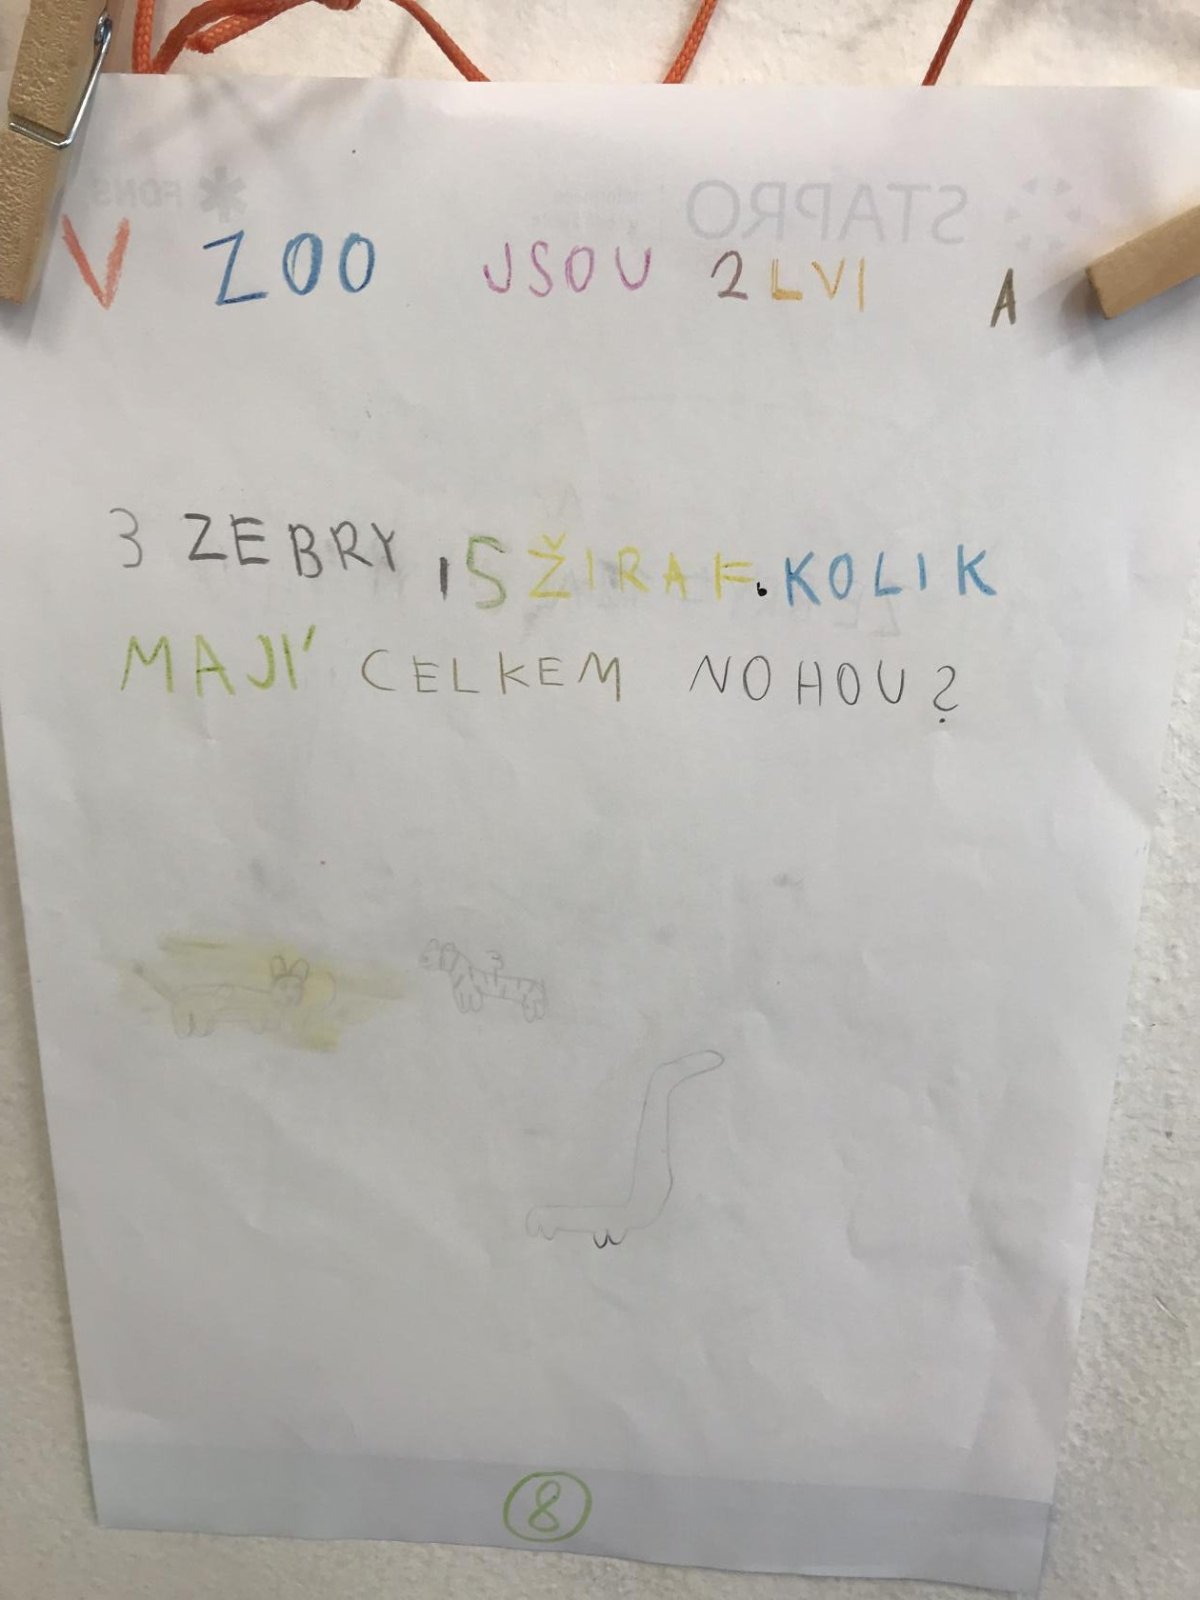 V ZOO JSOU 2 LVI A
3 ZEBRY, 5 ŽIRAF. KOLIK
MAJÍ CELKEM NOHOU?
8